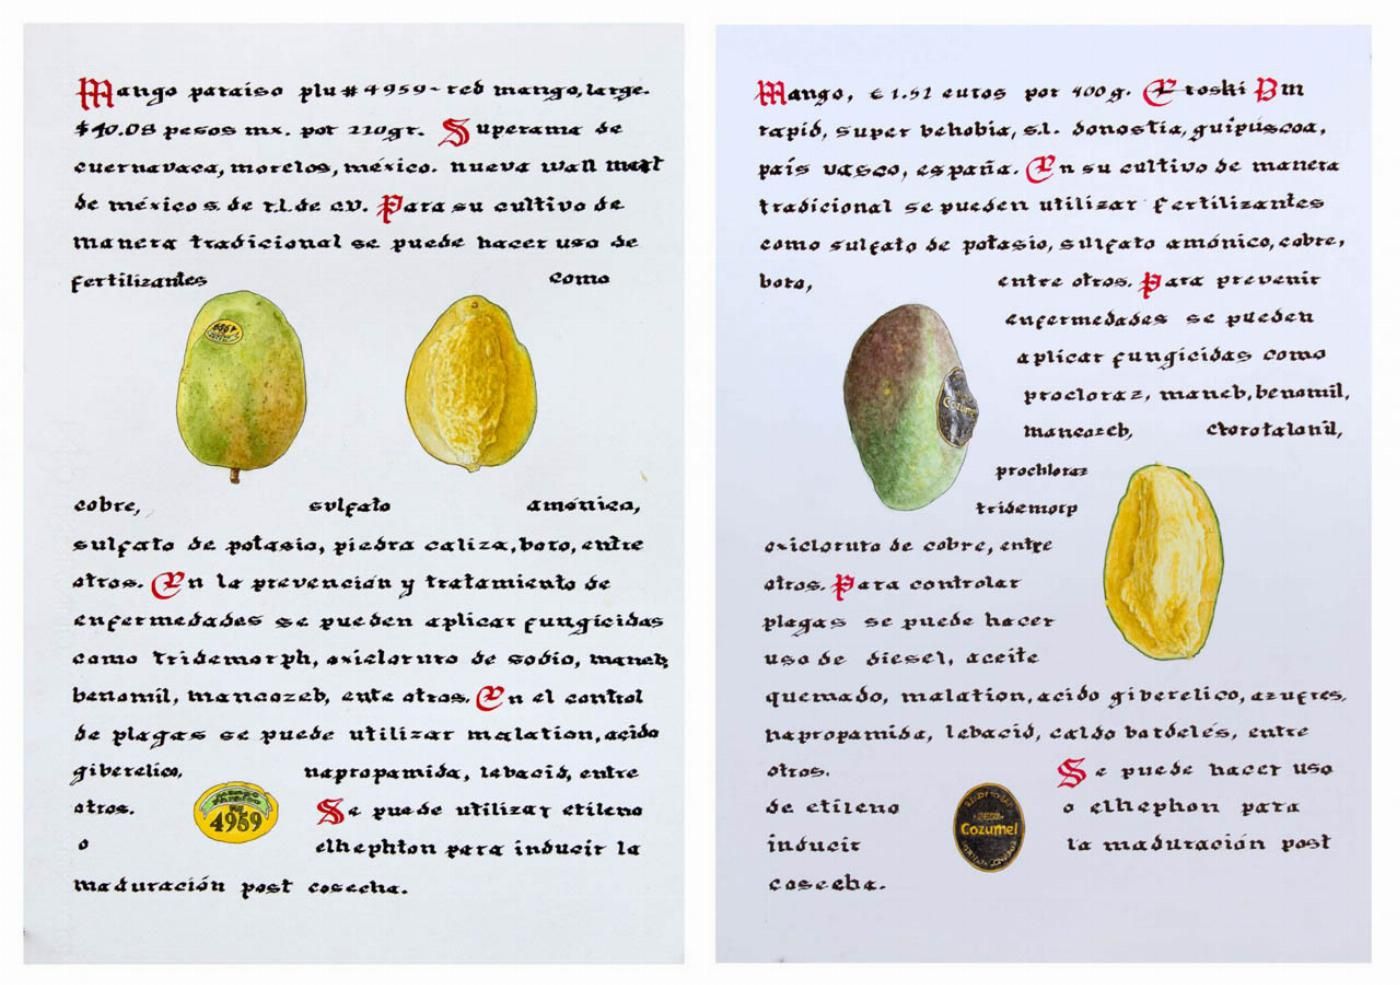 Mango paraiso plu#4959-red mango, large.
$40.08 pesos mx. por 210gr. Superama de
cuernavaca, morelos, méxico. nueva wall mart
de méxico s. de r.l. de c.v. Para su cultivo de
manera tradicional se puede hacer uso de
fertilizantes como
cobre, sulfato amónico,
sulfato de potasio, piedra caliza, boro, entre
otros. En la prevención y tratamiento de
enfermedades se pueden aplicar fungicidas
como tridemorph, oxicloruro de sodio, maneb,
benomil, mancozeb, ente otros. En el control
de plagas se puede utilizar malation, acido
giberelico, napropamida, lebacid, entre
otros. Se puede utilizar etileno
o elhephton para inducir la
maduración post cosecha.
mango
Paraiso
4959
Mango, €1.52 euros por 400g. Eroski Bm
rapid, super behobia, s.l. donostia, guipúscoa,
país vasco, españa. En su cultivo de manera
tradicional se pueden utilizar fertilizantes
como sulfato de potasio, sulfato amónico, cobre,
boro, entre otros. Para prevenir
enfermedades se pueden
aplicar fungicidas como
procloraz, maneb, benomil,
mancozeb, clorotalonil,
prochloraz
tridemorp
oxicloruro de cobre, entre
otros. Para controlar
plagas se puede hacer
uso de diesel, aceite
quemado, malation, acido giberelico, azufres,
napropamida, lebacid, caldo bordelés, entre
otros. Se puede hacer uso
de etileno o elhephon para
inducir la maduración post
cosecha.
Cozumel
Cozumel